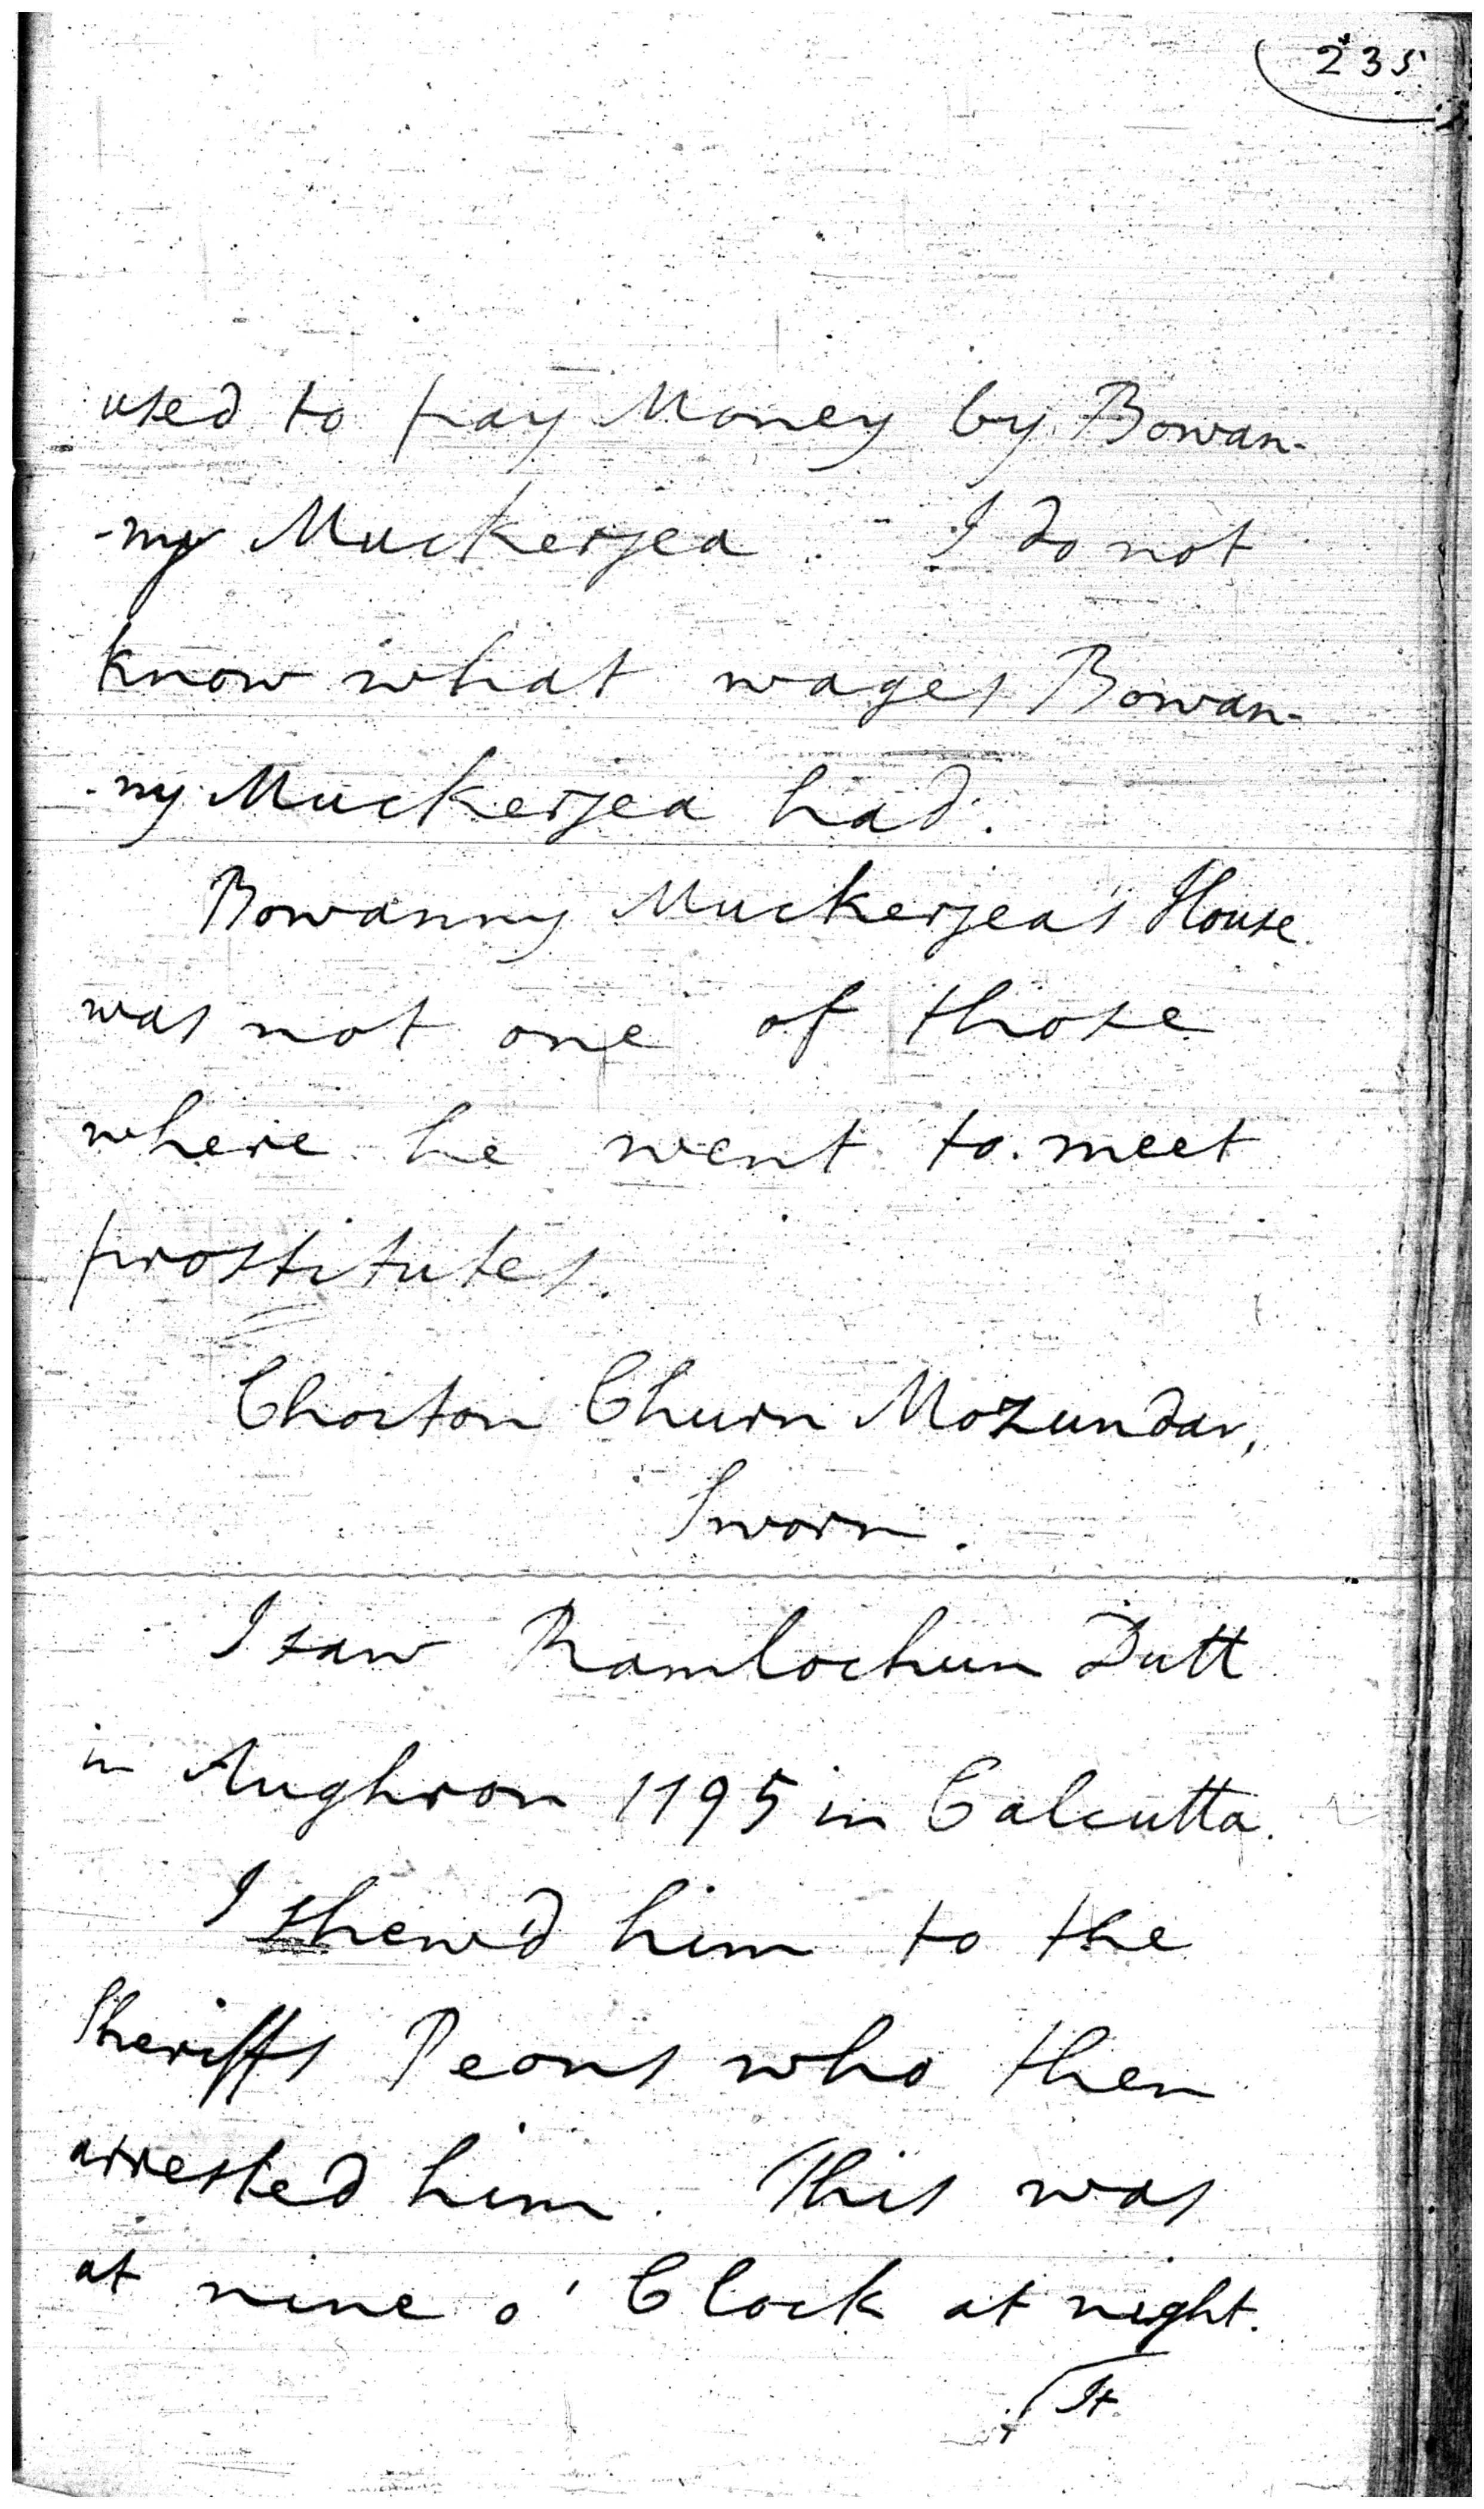 235
used to pay Money by Bowan-
-ny Muckerjea. I do not
know what wages Bowan-
-ny Muckerjea had.
Bowanny Muckerjea's House
was not one of those
where he went to meet
prostitutes.
Choiton Churn Mozundar,
Sworn.
I saw Ramlochun Dutt
in Aughron 1195 in Calcutta.
I shew'd him to the
Sheriffs Peons who then
arrested him. This was
at nine o'Clock at night.
It